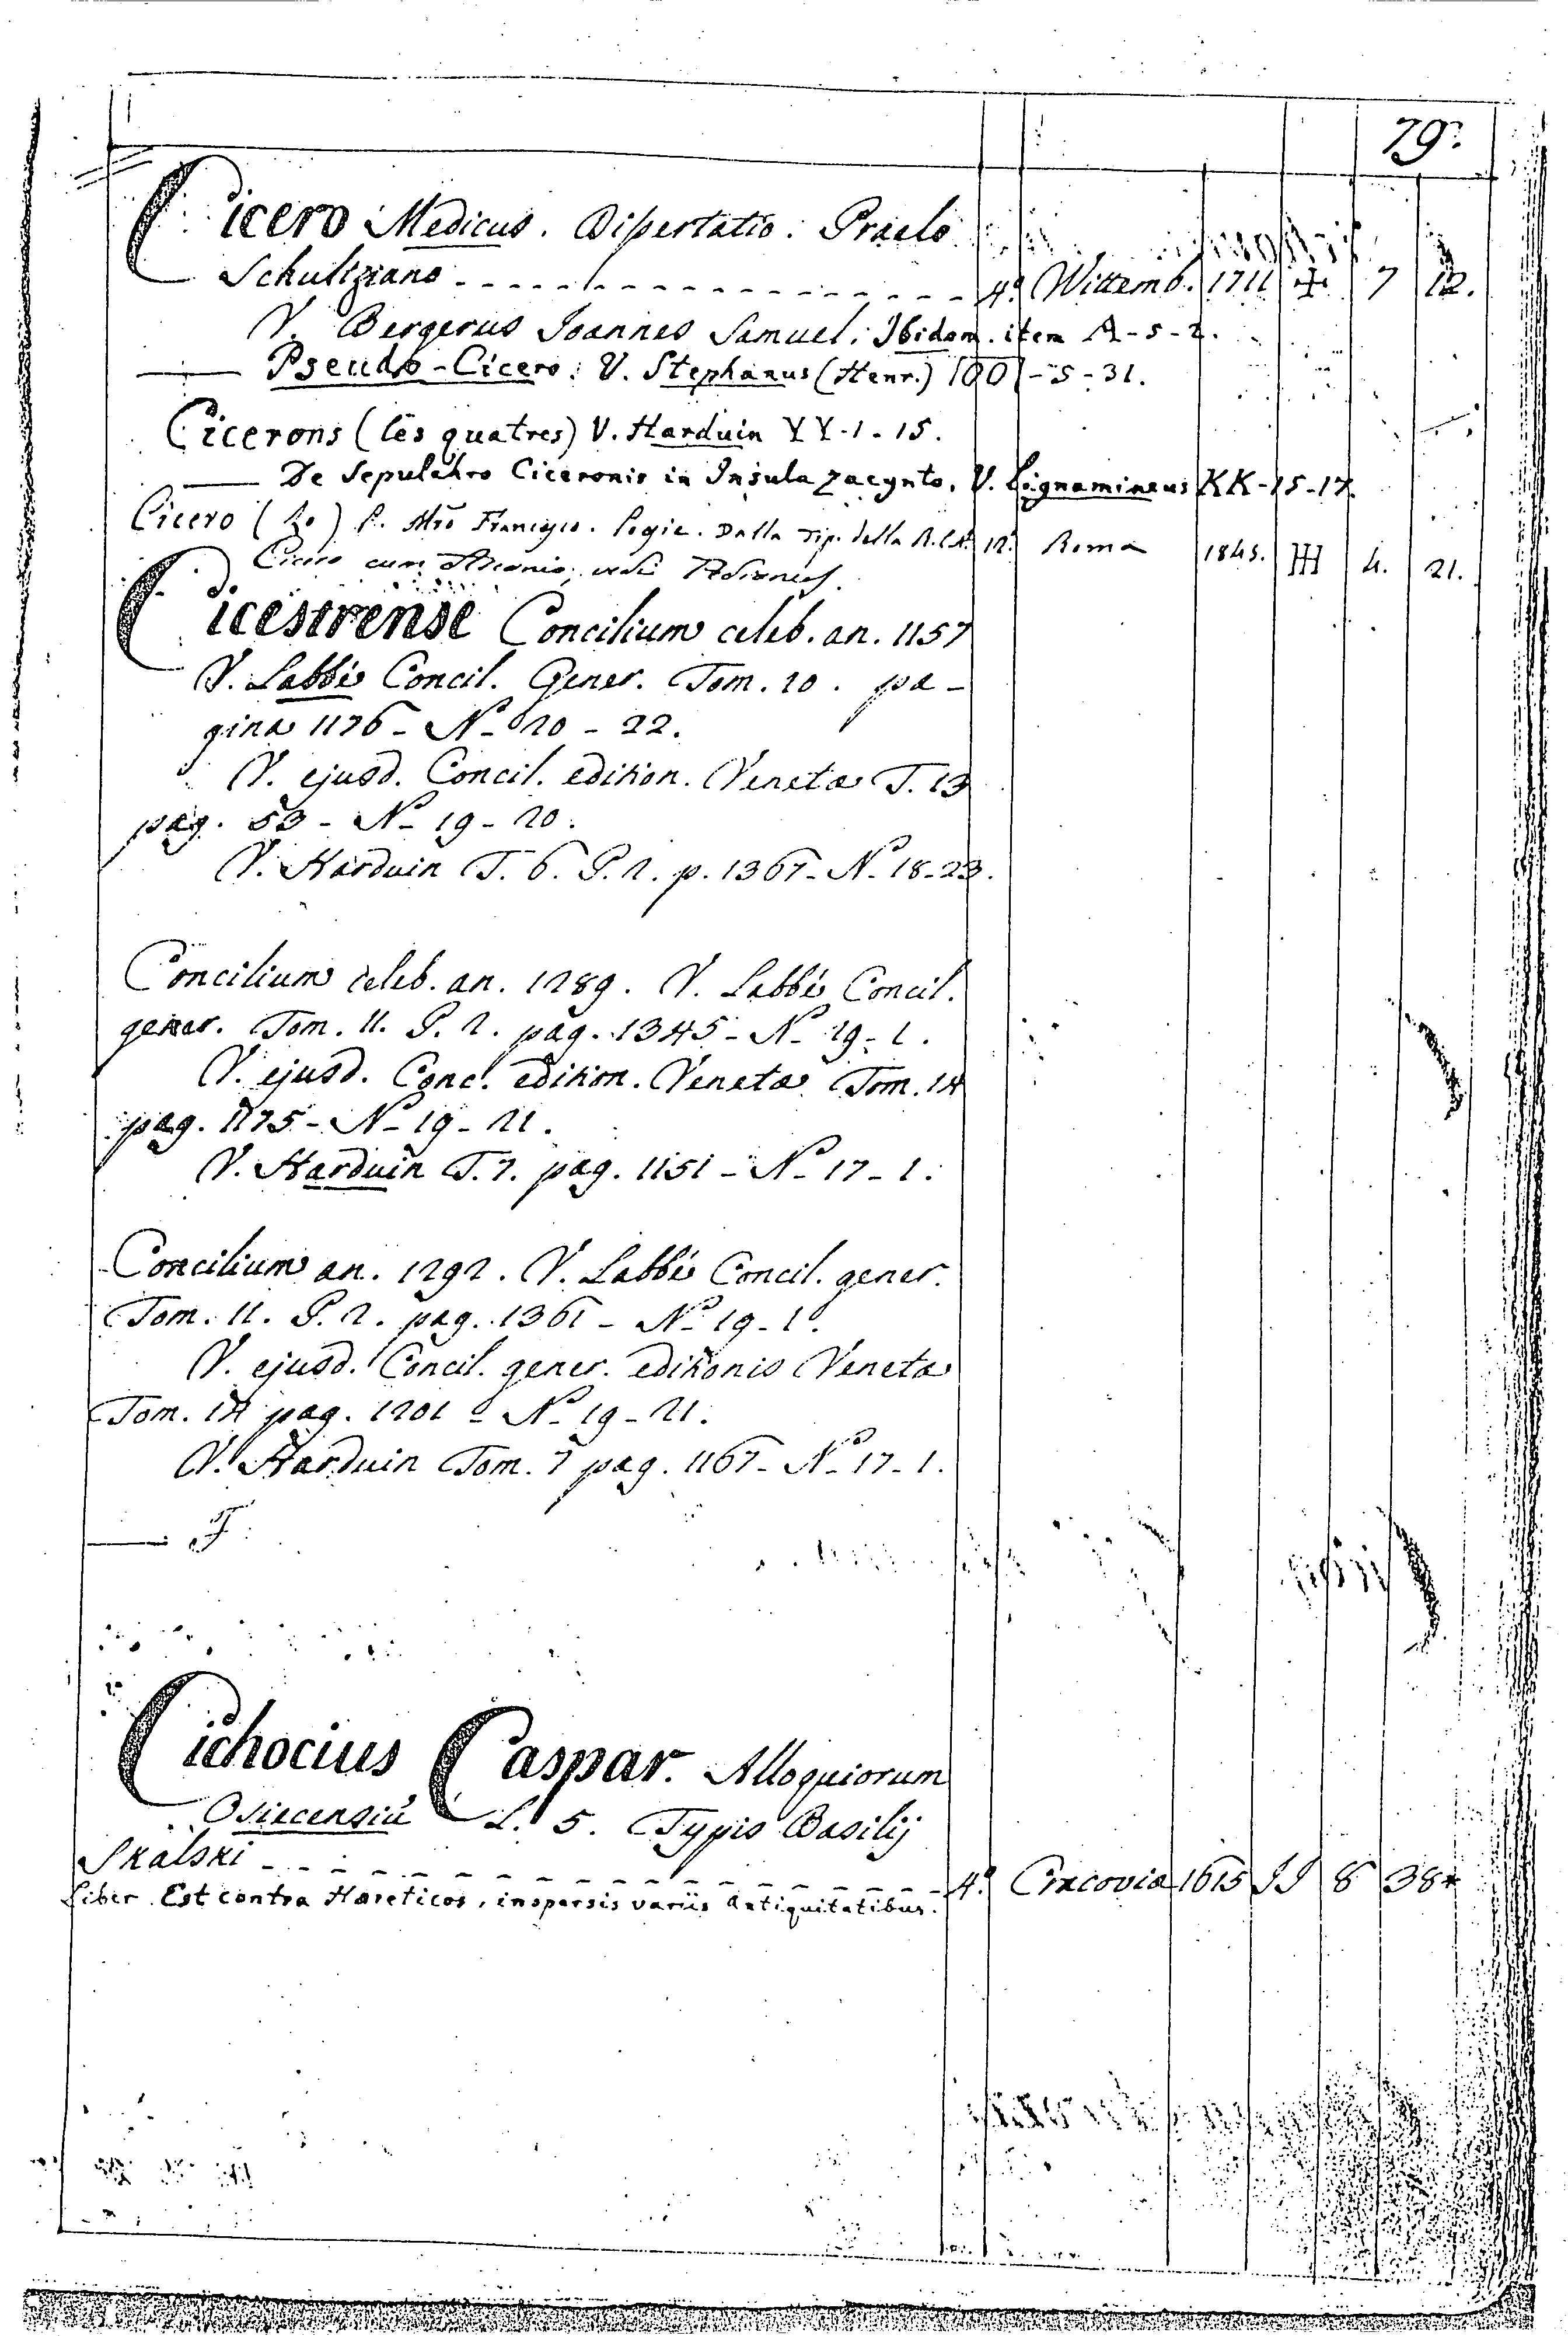 79.
Cicero Medicus. Dissertatio. Praelo
Schultziano - - - - - - - - - - - - - - - - - 4.º Wittemb. 1711 ✠ 7 12.
V. Bergerus Joannes Samuel. Ibidem. item A-5-2.
—— Pseudo-Cicero: V. Stephanus (Henr.) - 5 - 31.
Cicerons (les quatres) V. Harduin YY-1-15.
—— De Sepulchro Ciceronis in Insula Zacynto. V. Lignamineus KK-15-17.
Cicero (Lo) P. Mro Francesco. Logic. Dalla Tip. della R.C.A. 12. Roma 1845. HH 4. 21.
Cicero cum
Cicestrense Concilium celeb. an. 1157
V. Labbé Concil. Gener. Tom. 10. pa-
gina 1176 - Nº 20 - 22.
V. ejusd. Concil. edition. Veneta T. 13
pag. 53 - Nº 19 - 20.
V. Harduin T. 6. P. 2. p. 1367 - Nº 18-23.
Concilium celeb. an. 1289. V. Labbé Concil.
gener. Tom. 11. P. 2. pag. 1345 - Nº 19-1.
V. ejusd. Conc. edition. Veneta Tom. 14
pag. 1175 - Nº 19 - 21.
V. Harduin T. 7. pag. 1151 - Nº 17 - 1.
Concilium an. 1292. V. Labbé Concil. gener.
Tom. 11. P. 2. pag. 1361 - Nº 19-1.
V. ejusd. Concil. gener. editionis Veneta
Tom. 14 pag. 1201 - Nº 19 - 21.
V. Harduin Tom. 7 pag. 1167 - Nº 17 - 1.
—— T.
Cichocius Caspar. Alloquiorum
Osiecensiū L. 5. Typis Basilij
Skalski - - - - - - - - - - - - - - - - 4.º Cracovia 1615 JJ 8 38*
Liber Est contra Haereticos, inspersis variis Antiquitatibus.